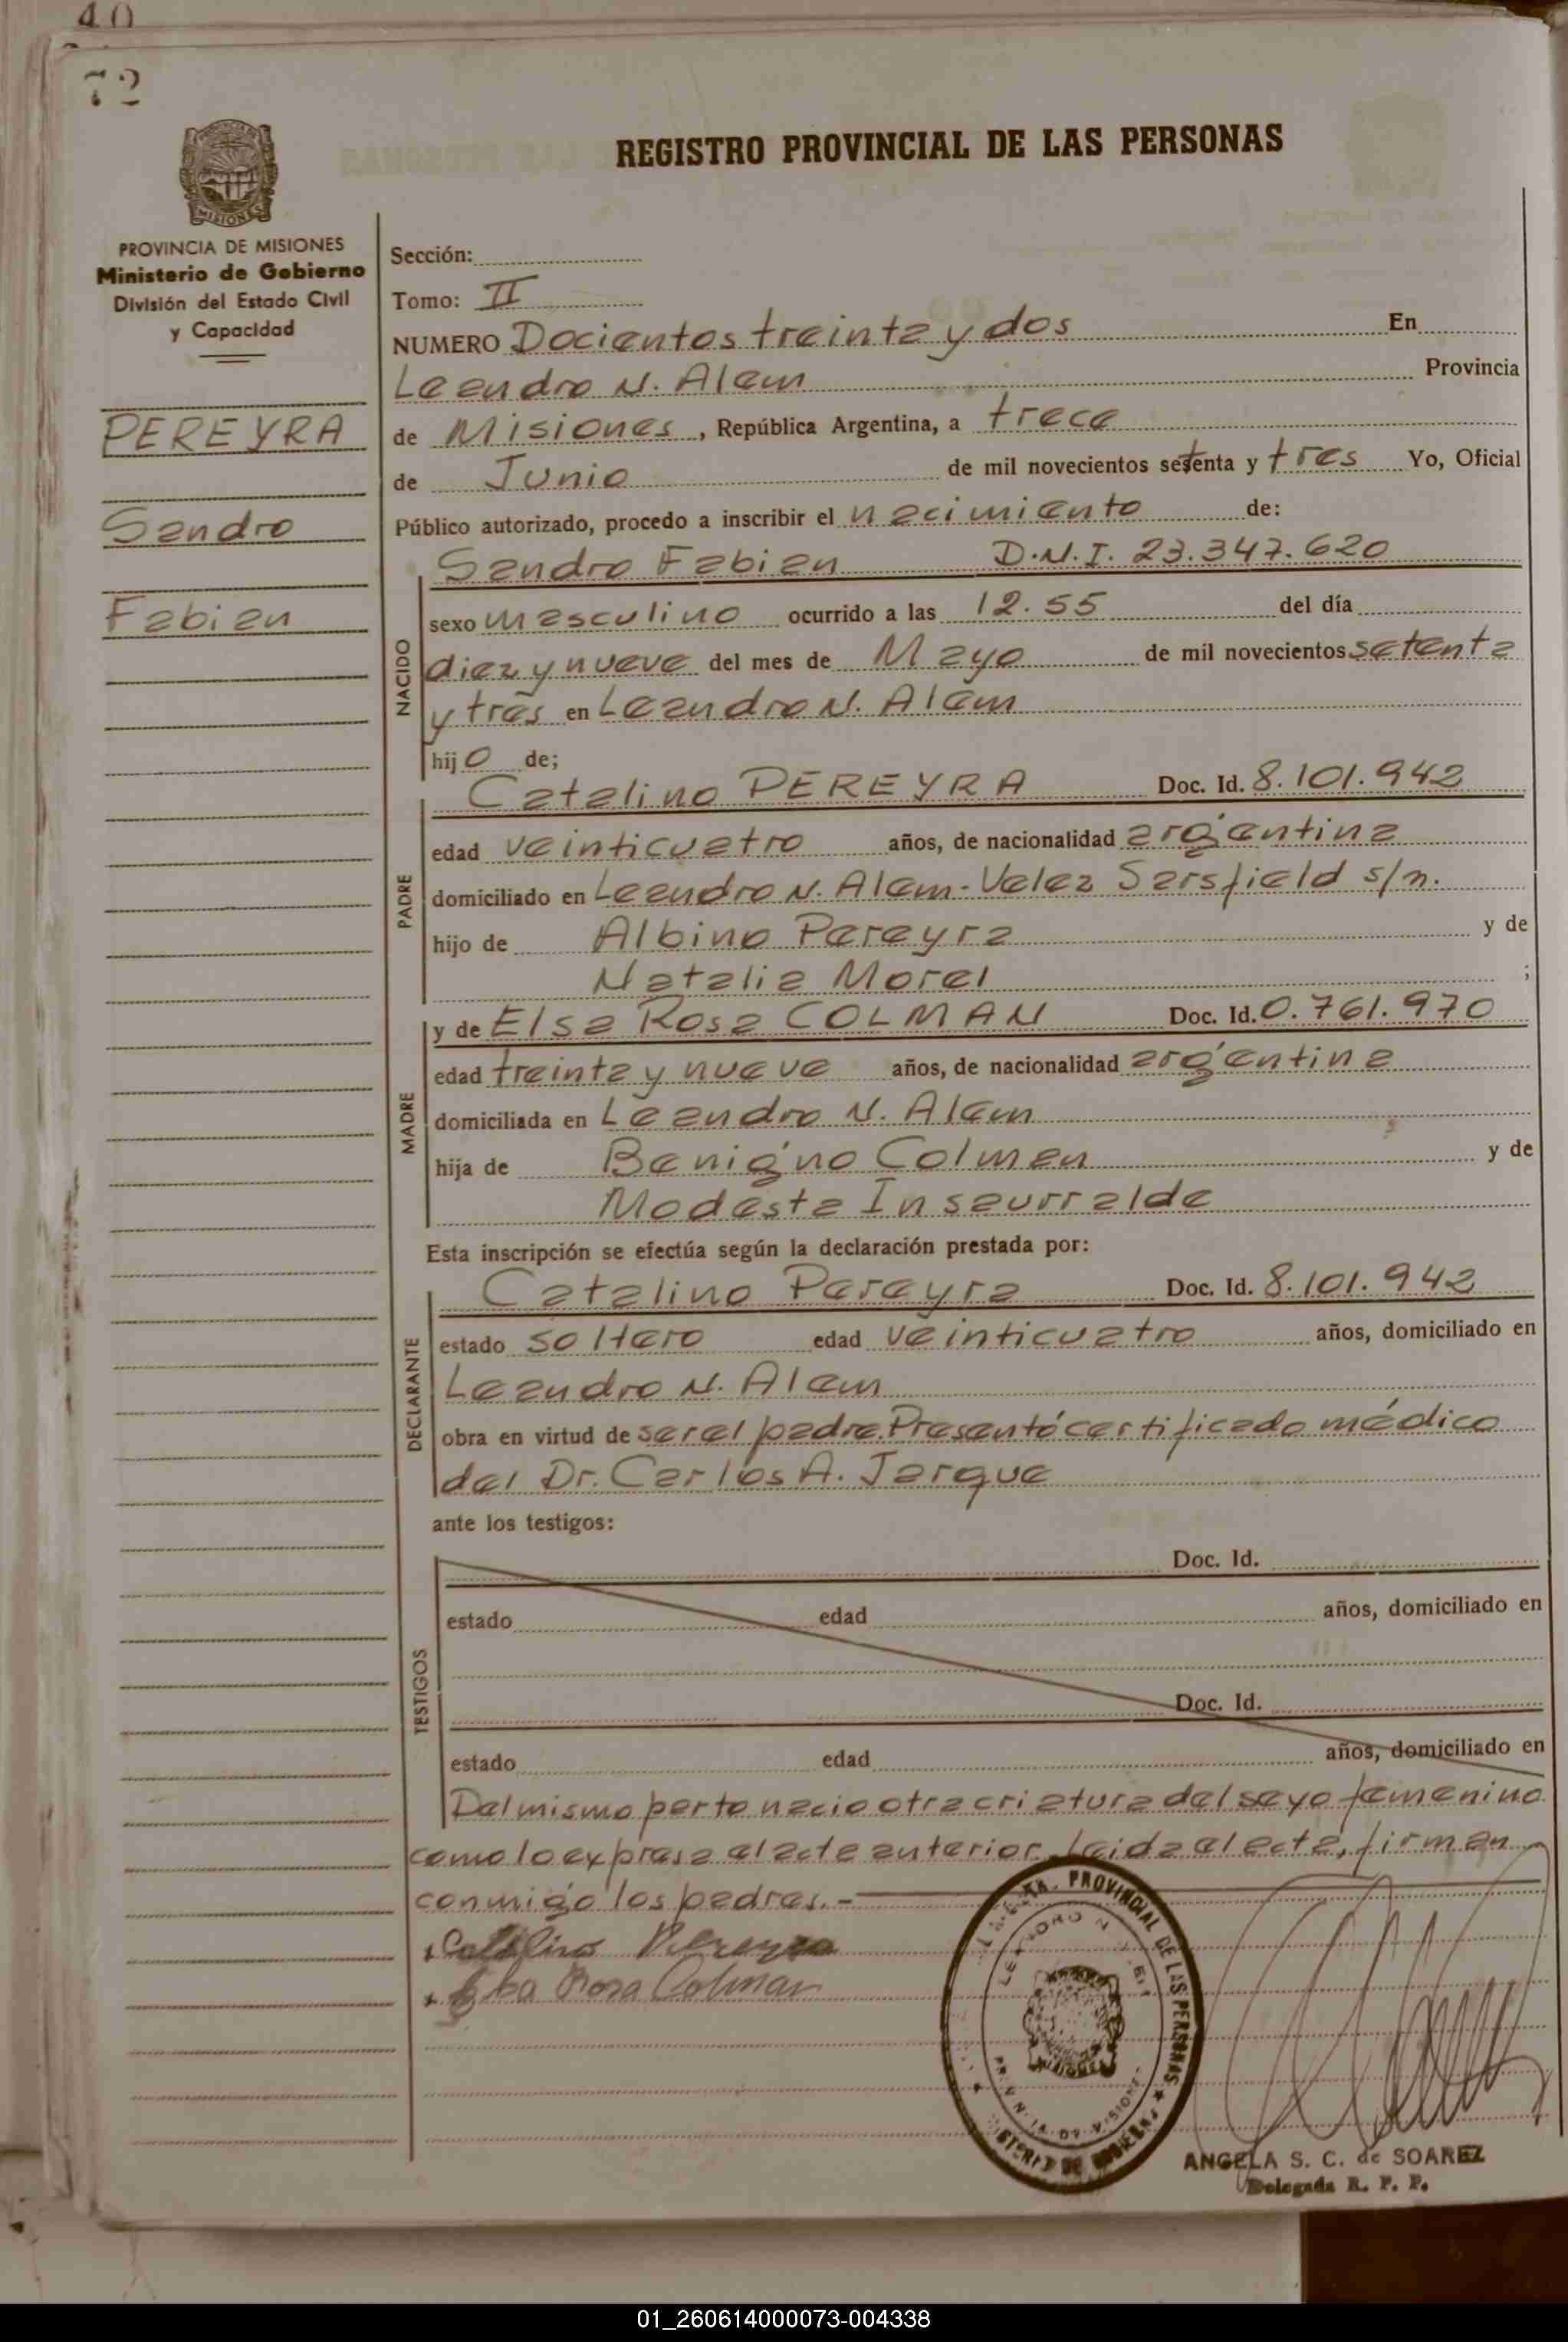 40
72
MISIONES
REGISTRO PROVINCIAL DE LAS PERSONAS
PROVINCIA DE MISIONES
Ministerio de Gobierno
División del Estado Civil
y Capacidad
PEREYRA
Sandro
Fabian
Sección:
Tomo: II
NUMERO Docientos treinta y dos En
Leandro N. Alem Provincia
de Misiones, República Argentina, a trece
de Junio de mil novecientos setenta y tres Yo, Oficial
Público autorizado, procedo a inscribir el nacimiento de:
Sandro Fabian D.N.I. 23.347.620
NACIDO
sexo masculino ocurrido a las 12.55 del día
diez y nueve del mes de Mayo de mil novecientos setenta
y tres en Leandro N. Alem
hijo de;
PADRE
Catalino PEREYRA Doc. Id. 8.101.942
edad veinticuatro años, de nacionalidad argentina
domiciliado en Leandro N. Alem-Velez Sarsfield s/n.
hijo de Albino Pereyra y de
Natalia Morel ;
MADRE
y de Elsa Rosa COLMAN Doc. Id. 0.761.970
edad treinta y nueve años, de nacionalidad argentina
domiciliada en Leandro N. Alem
hija de Benigno Colman y de
Modesta Insaurralde
Esta inscripción se efectúa según la declaración prestada por:
DECLARANTE
Catalino Pereyra Doc. Id. 8.101.942
estado soltero edad veinticuatro años, domiciliado en
Leandro N. Alem
obra en virtud de ser el padre. Presentó certificado médico
del Dr. Carlos A. Jarque
ante los testigos:
TESTIGOS
Doc. Id.
estado edad años, domiciliado en
Doc. Id.
estado edad años, domiciliado en
Del mismo parto nacio otra criatura del sexo femenino
como lo expresa el acta anterior. Leida el acta, firman
conmigo los padres.-
Catalino Pereyra
Rosa Colman
PROVINCIAL DE LAS PERSONAS
MISIONES
ANGELA S. C. de SOAREZ
Delegada R. P. P.
01_260614000073-004338